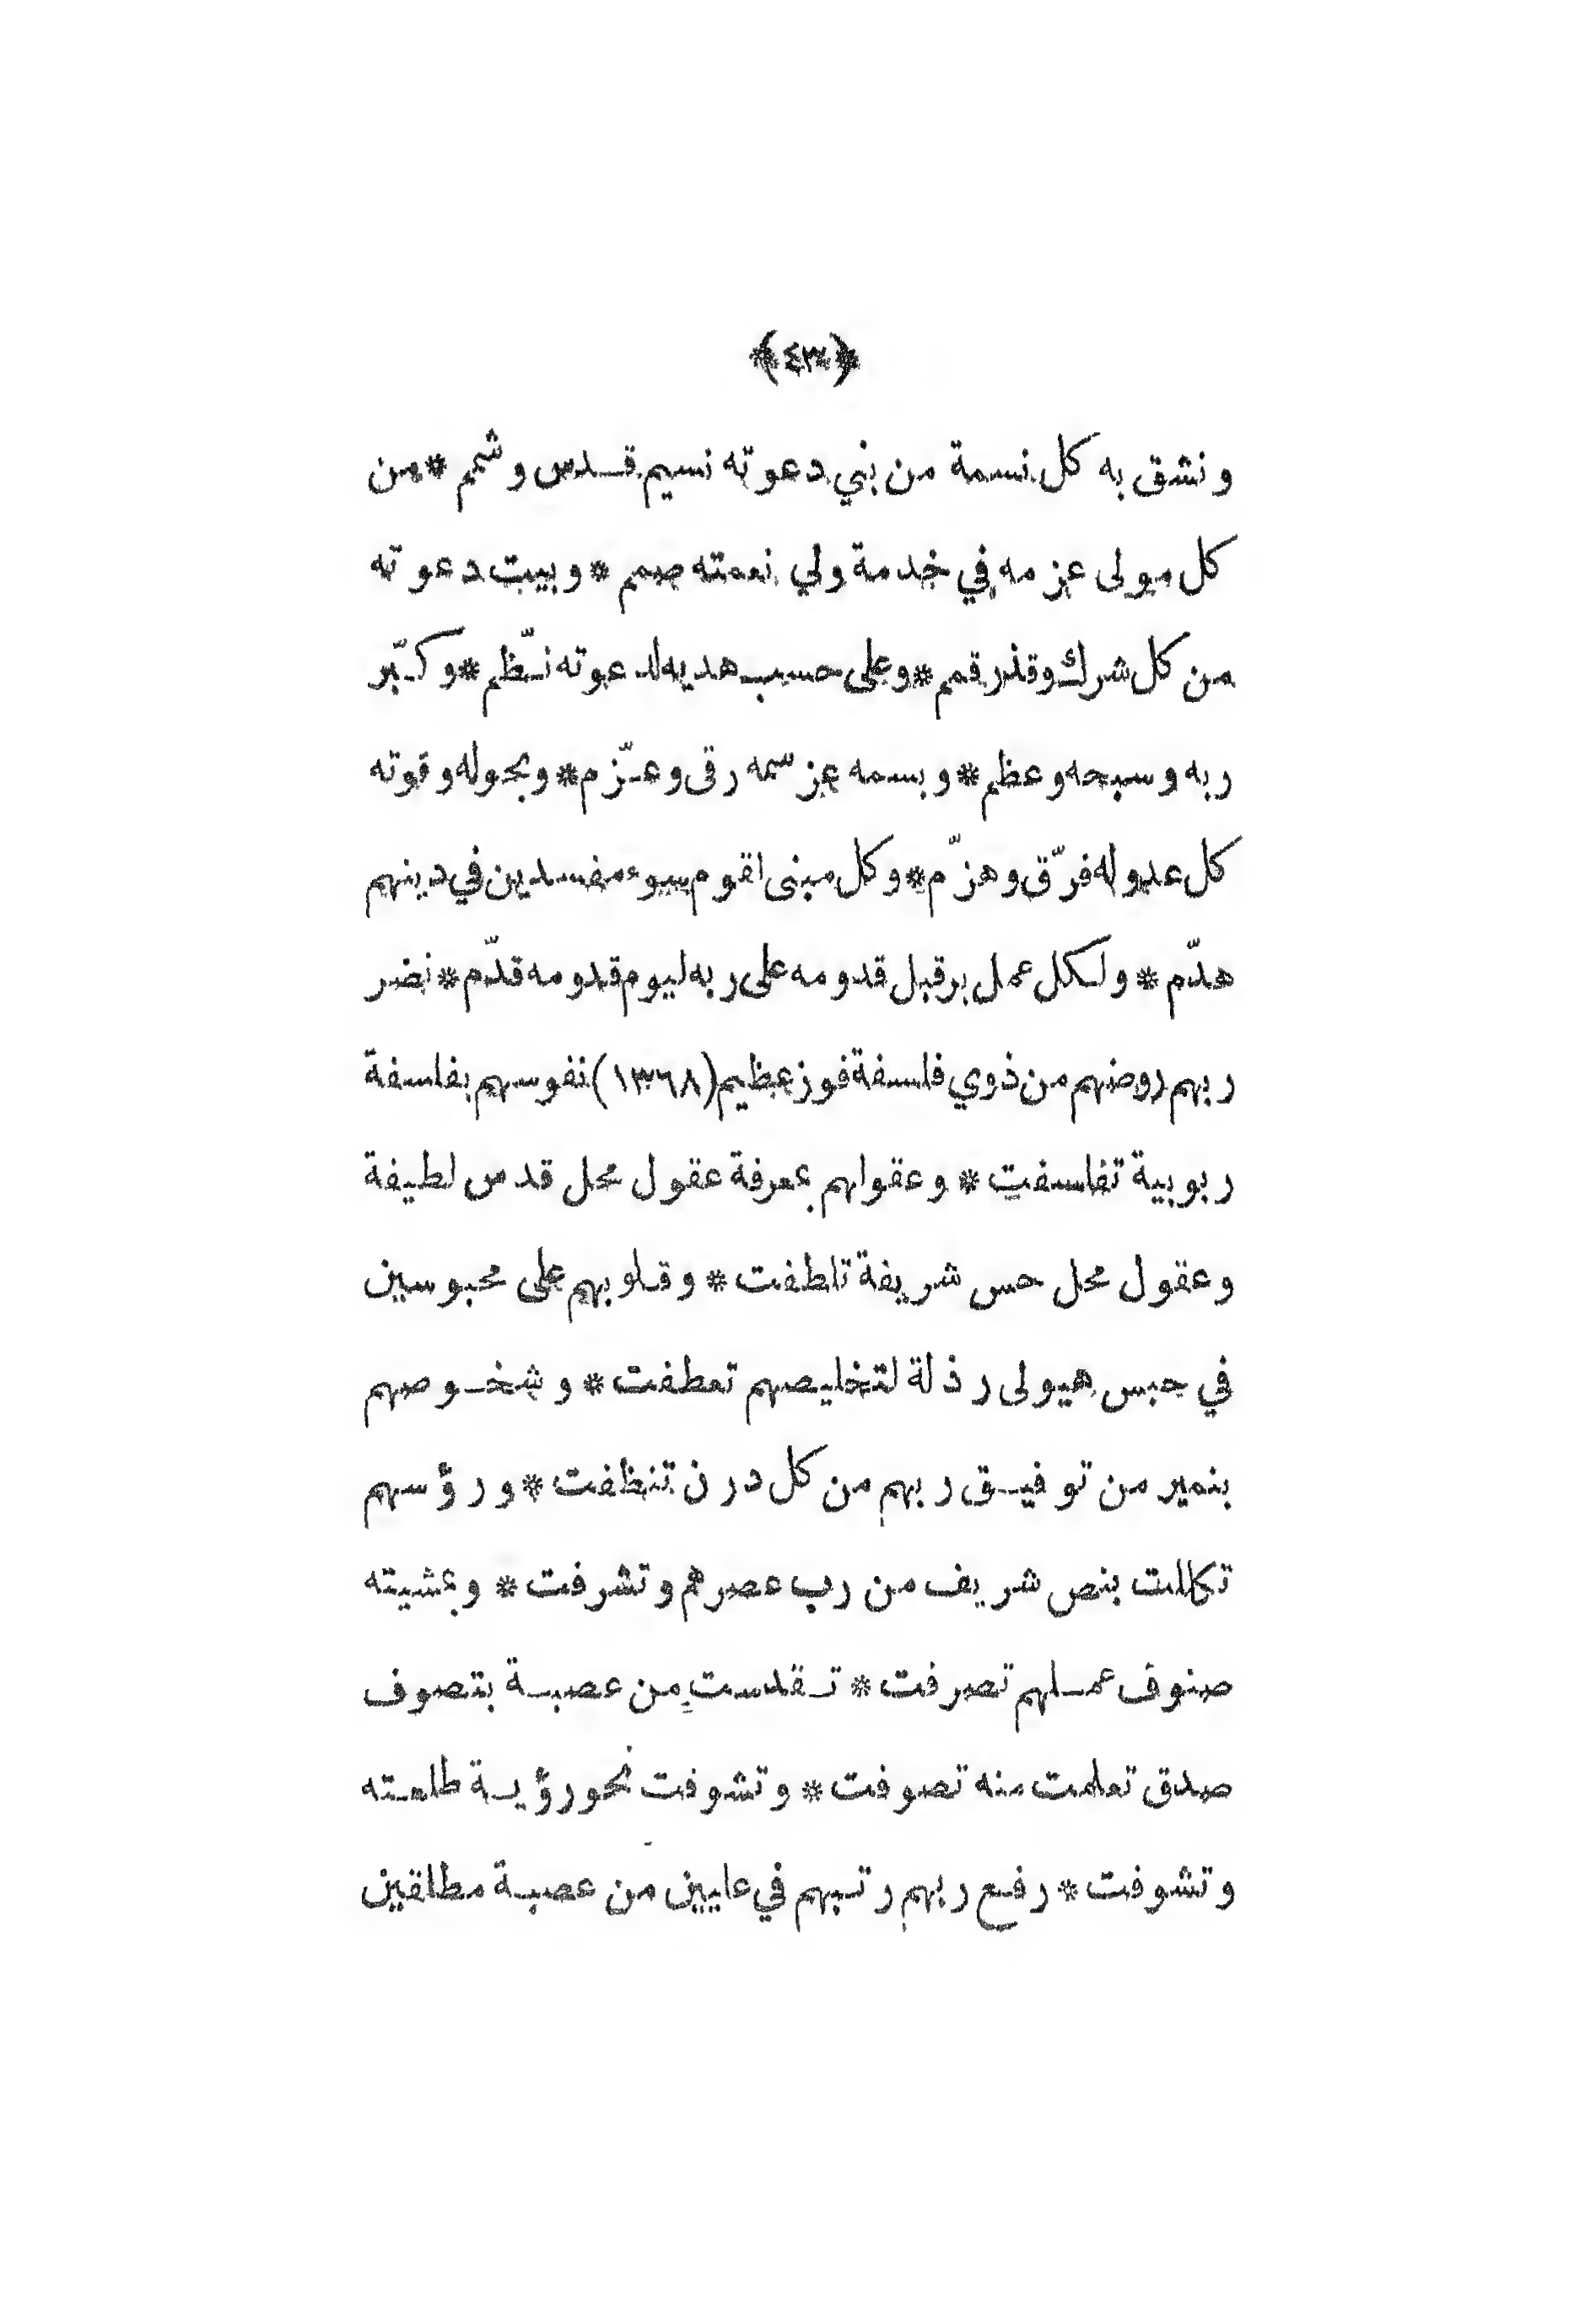 ﴿٤٣﴾
ونشق به كل نسمة من بني دعوته نسيم قدس وشمم * من
كل مولى عزمه في خدمة ولي نعمته صمم * وبيت دعوته
من كل شرك وقذر قمم * وعلى حسب هديه لدعوته نظّم * وكبّر
ربه وسبحه وعظم * وبسمه عز سمه رقى وعزّم * وبحوله وقوته
كل عدو له فرّق وهزّم * وكل مبنى لقوم سوء مفسدين في دينهم
هدّم * ولكل عمل بر قبل قدومه على ربه ليوم قدومه قدّم * نضر
ربهم روضهم من ذوي فلسفة فوز عظيم (١٣٦٨) نفوسهم بفلسفة
ربوبية تفلسفت * وعقولهم بمعرفة عقول محل قدس لطيفة
وعقول محل حس شريفة تلطفت * وقلوبهم على محبوسين
في حبس هيولى رذلة لتخليصهم تعطفت * وشخوصهم
بنمير من توفيق ربهم من كل درن تنظفت * ورؤسهم
تكللت بنص شريف من رب عصرهم وتشرفت * وبمشيته
صنوف عملهم تصرفت * تقدست من عصبة بتصوف
صدق تعلمت منه تصوفت * وتشوفت نحو رؤية طلعته
وتشوفت * رفع ربهم رتبهم في عليين من عصبة مطلقين